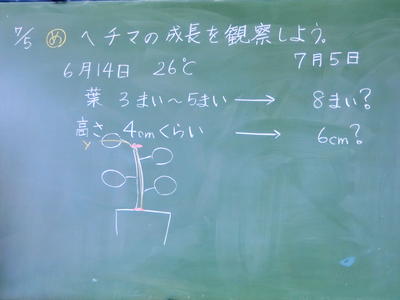 7/5 め ヘチマの成長を観察しよう。
6月14日 26℃ 7月5日
葉 3まい〜5まい → 8まい?
高さ 4cmくらい → 6cm?